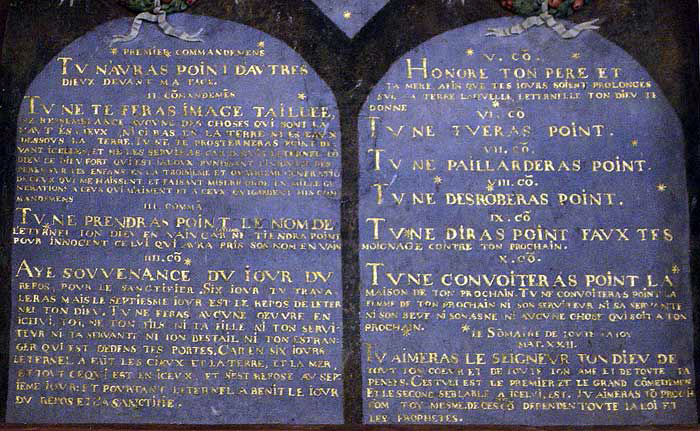 PREMIER COMMANDEMENS
TV NAVRAS POINT DAVTRES
DIEVX DEVANT MA FACE.
II COMANDEMĒS
TV NE TE FERAS IMAGE TAILLEE,
NE RESEMBLANCE AVCVNE DES CHOSES QVI SONT LA
HAVT ES CIEVX NI CI BAS EN LA TERRE NI ES EAVX
DESSOVS LA TERRE. TV NE TE PROSTERNERAS POINT DE
VANT ICELLES, ET NE LES SERVIRAS CAR IE SVIS LETERNEL TŌ
DIEV LE DIEV FORT QVI EST IALOVX PVNISSANT LINIQVITE DES
PERES SVR LES ENFANS EN LA TROISIEME ET QVATRIEME GENERATIŌ
DE CEVX QVI ME HAISSENT, ET FAISANT MISERICORDE EN MILLE GE
NERATIONS A CEVX QVI MAIMENT ET A CEVX QVI GARDENT MES COM
MANDEMENS
III COMMA
TV NE PRENDRAS POINT LE NOM DE
LETERNEL TON DIEV EN VAIN CAR LETERNEL NE TIENDRA POINT
POVR INNOCENT CELVI QVI AVRA PRIS SON NOM EN VAIN
IIII. CŌ
AYE SOVVENANCE DV IOVR DV
REPOS, POVR LE SANCTIFIER. SIX IOVR TV TRAVA
LERAS MAIS LE SEPTIESME IOVR EST LE REPOS DE LETER
NEL TON DIEV. TV NE FERAS AVCVNE OEVVRE EN
ICELVI, TOI, NE TON FILS NI TA FILLE NI TON SERVI
TEVR NI TA SERVANTE NI TON BESTAIL NI TON ESTRAN
GER QVI EST DEDENS TES PORTES. CAR EN SIX IOVRS
LETERNEL A FEIT LES CIEVX ET LA TERRE, ET LA MER
ET TOVT CE QVI EST EN ICEVX, ET SEST REPOSE AV SEP
TIEME IOVR: ET POVRTANT LETERNEL A BENIT LE IOVR
DV REPOS ET LA SANCTIFIE.
V. CŌ.
HONORE TON PERE ET
TA MERE AFIN QVE TES IOVRS SOIENT PROLONGES
SVR LA TERRE LAQVELLE LETERNEL TON DIEV TE
DONNE
VI. CŌ
TV NE TVERAS POINT.
VII. CŌ.
TV NE PAILLARDERAS POINT.
VIII. CŌ.
TV NE DESROBERAS POINT.
IX. CŌ
TV NE DIRAS POINT FAVX TES
MOIGNAGE CONTRE TON PROCHAIN.
X. CŌ.
TV NE CONVOITERAS POINT LA
MAISON DE TON PROCHAIN. TV NE CONVOITERAS POINT LA
FEMME DE TON PROCHAIN NI SON SERVITEVR NI SA SERVANTE
NI SON BEVF NI SON ASNE NI AVCVNE CHOSE QVI SOIT A TON
PROCHAIN.
LE SOMAIRE DE TOVTE LA LOY
MAT. XXII.
TV AIMERAS LE SEIGNEVR TON DIEV DE
TOVT TON COEVR ET DE TOVTE TON AME ET DE TOVTE TA
PENSEE. CESTVI EST LE PREMIER ET LE GRAND COMĒDEMEN
ET LE SECOND SEBLABLE A ICELVI, EST. TV AIMERAS TŌ PROCH
COM TOY MESME. DE CES CŌ DEPENDEN TOVTE LA LOI ET
LES PROPHETES.